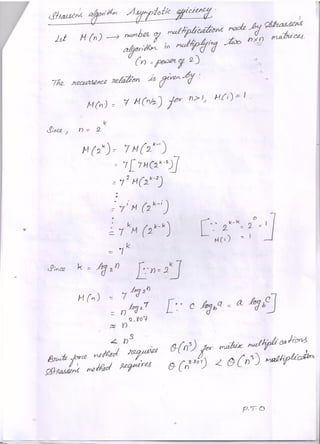 Strassen's algorithm - Asymptotic efficiency
Let M(n) → number of multiplications made by Strassen's
algorithm in multiplying two n×n matrices.
(n - power of 2)
The recurrence relation is given by :
M(n) = 7 M(n/2) for n>1, M(1)=1
Since, n = 2^k
M(2^k) = 7 M(2^k-1)
= 7[7M(2^k-2)]
= 7^2 M(2^k-2)
:
= 7^i M(2^k-i)
:
= 7^k M(2^k-k) [∵ 2^k-k = 2^0 = 1
M(1) = 1]
= 7^k
Since k = log2 n [∵ n = 2^k]
M(n) = 7^log2 n
= n^log2 7 [∵ c log_b a = a log_b c]
≈ n^0.807
< n^3
Brute force method requires Θ(n^3) for matrix multiplications
Strassen's method requires Θ(n^0.807) < Θ(n^3) multiplication
P.T.O